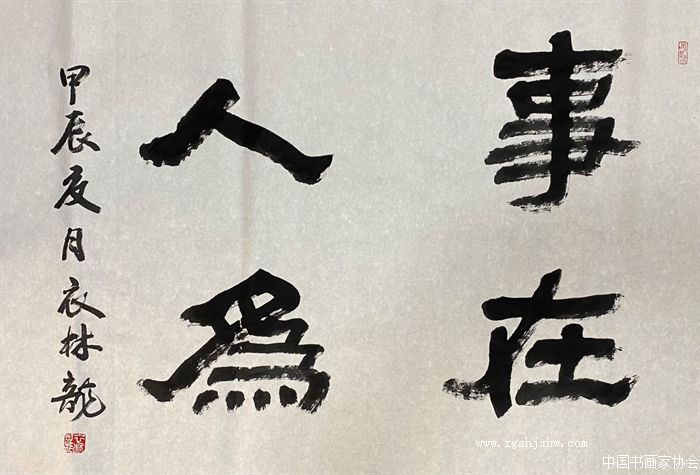 事在
人為
甲辰夏月衣林龍
www.zgshjxhw.com
中国书画家协会